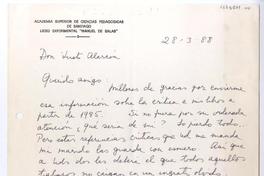 ACADEMIA SUPERIOR DE CIENCIAS PEDAGOGICAS
DE SANTIAGO
LICEO EXPERIMENTAL "MANUEL DE SALAS"
28-3-88
Don Justo Alarcón
Querido amigo:
Millones de gracias por enviarme
esa información sobre la crítica a mis libros a
partir de 1985. Si no fuera por su ordenada
atención ¿qué sería de mí? Lo pierdo todo..
Pero estas referencias críticas que Ud me manda
mi marido las guarda con esmero. Así que
a Uds dos les deberé el que todos aquellos
trabajos no caigan en un ingrato olvido.